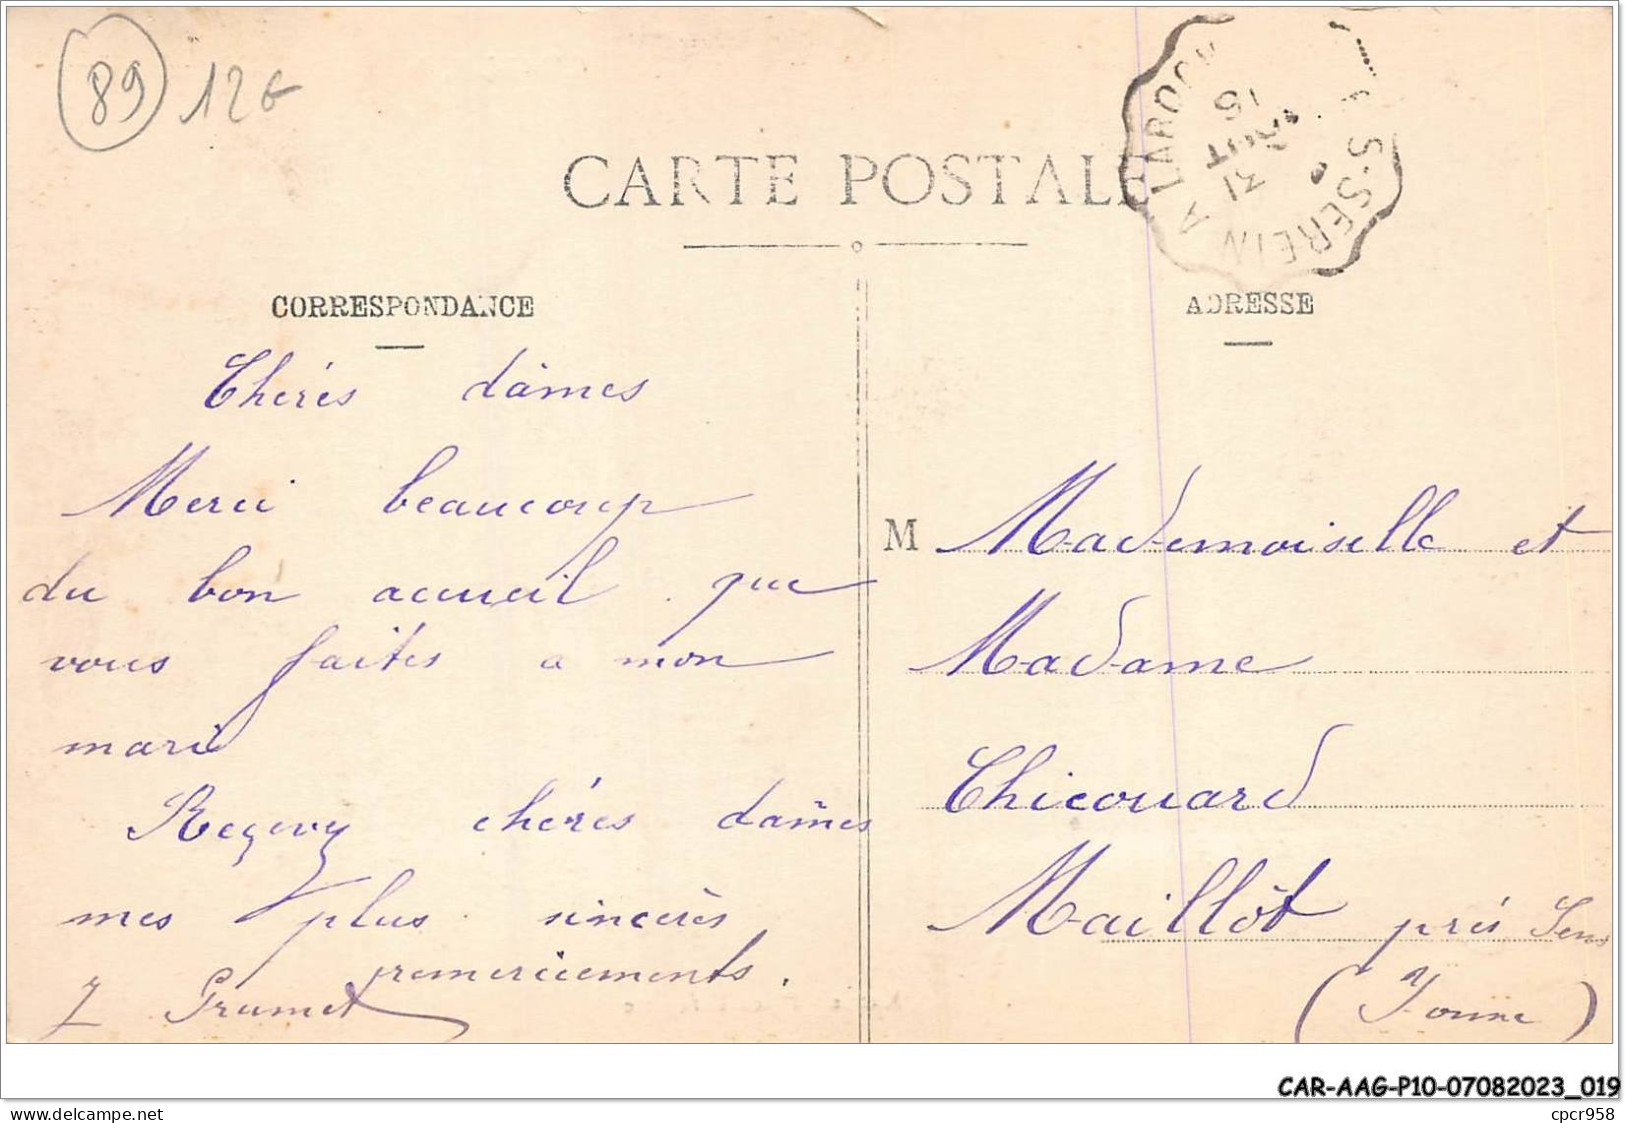 89 12€
CARTE POSTALE
S-SEREIN A LAROCHE
31
AOUT
16
CORRESPONDANCE
ADRESSE
Chérés dâmes
Merci beaucoup
du bon accueil que
vous faites a mon
mari
Reçevez chérés dâmes
mes plus sincerès
remerciements.
J Grumet
M Mademoiselle et
Madame
Chicouard
Maillôt prés Sens
(Yonne)
CAR-AAG-P10-07082023_019
www.delcampe.net
cpcr958